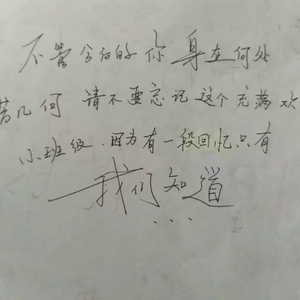 不管今后的你身在何处
若几何 请不要忘记这个充满欢
小班级.因为有一段回忆只有
我们知道
...